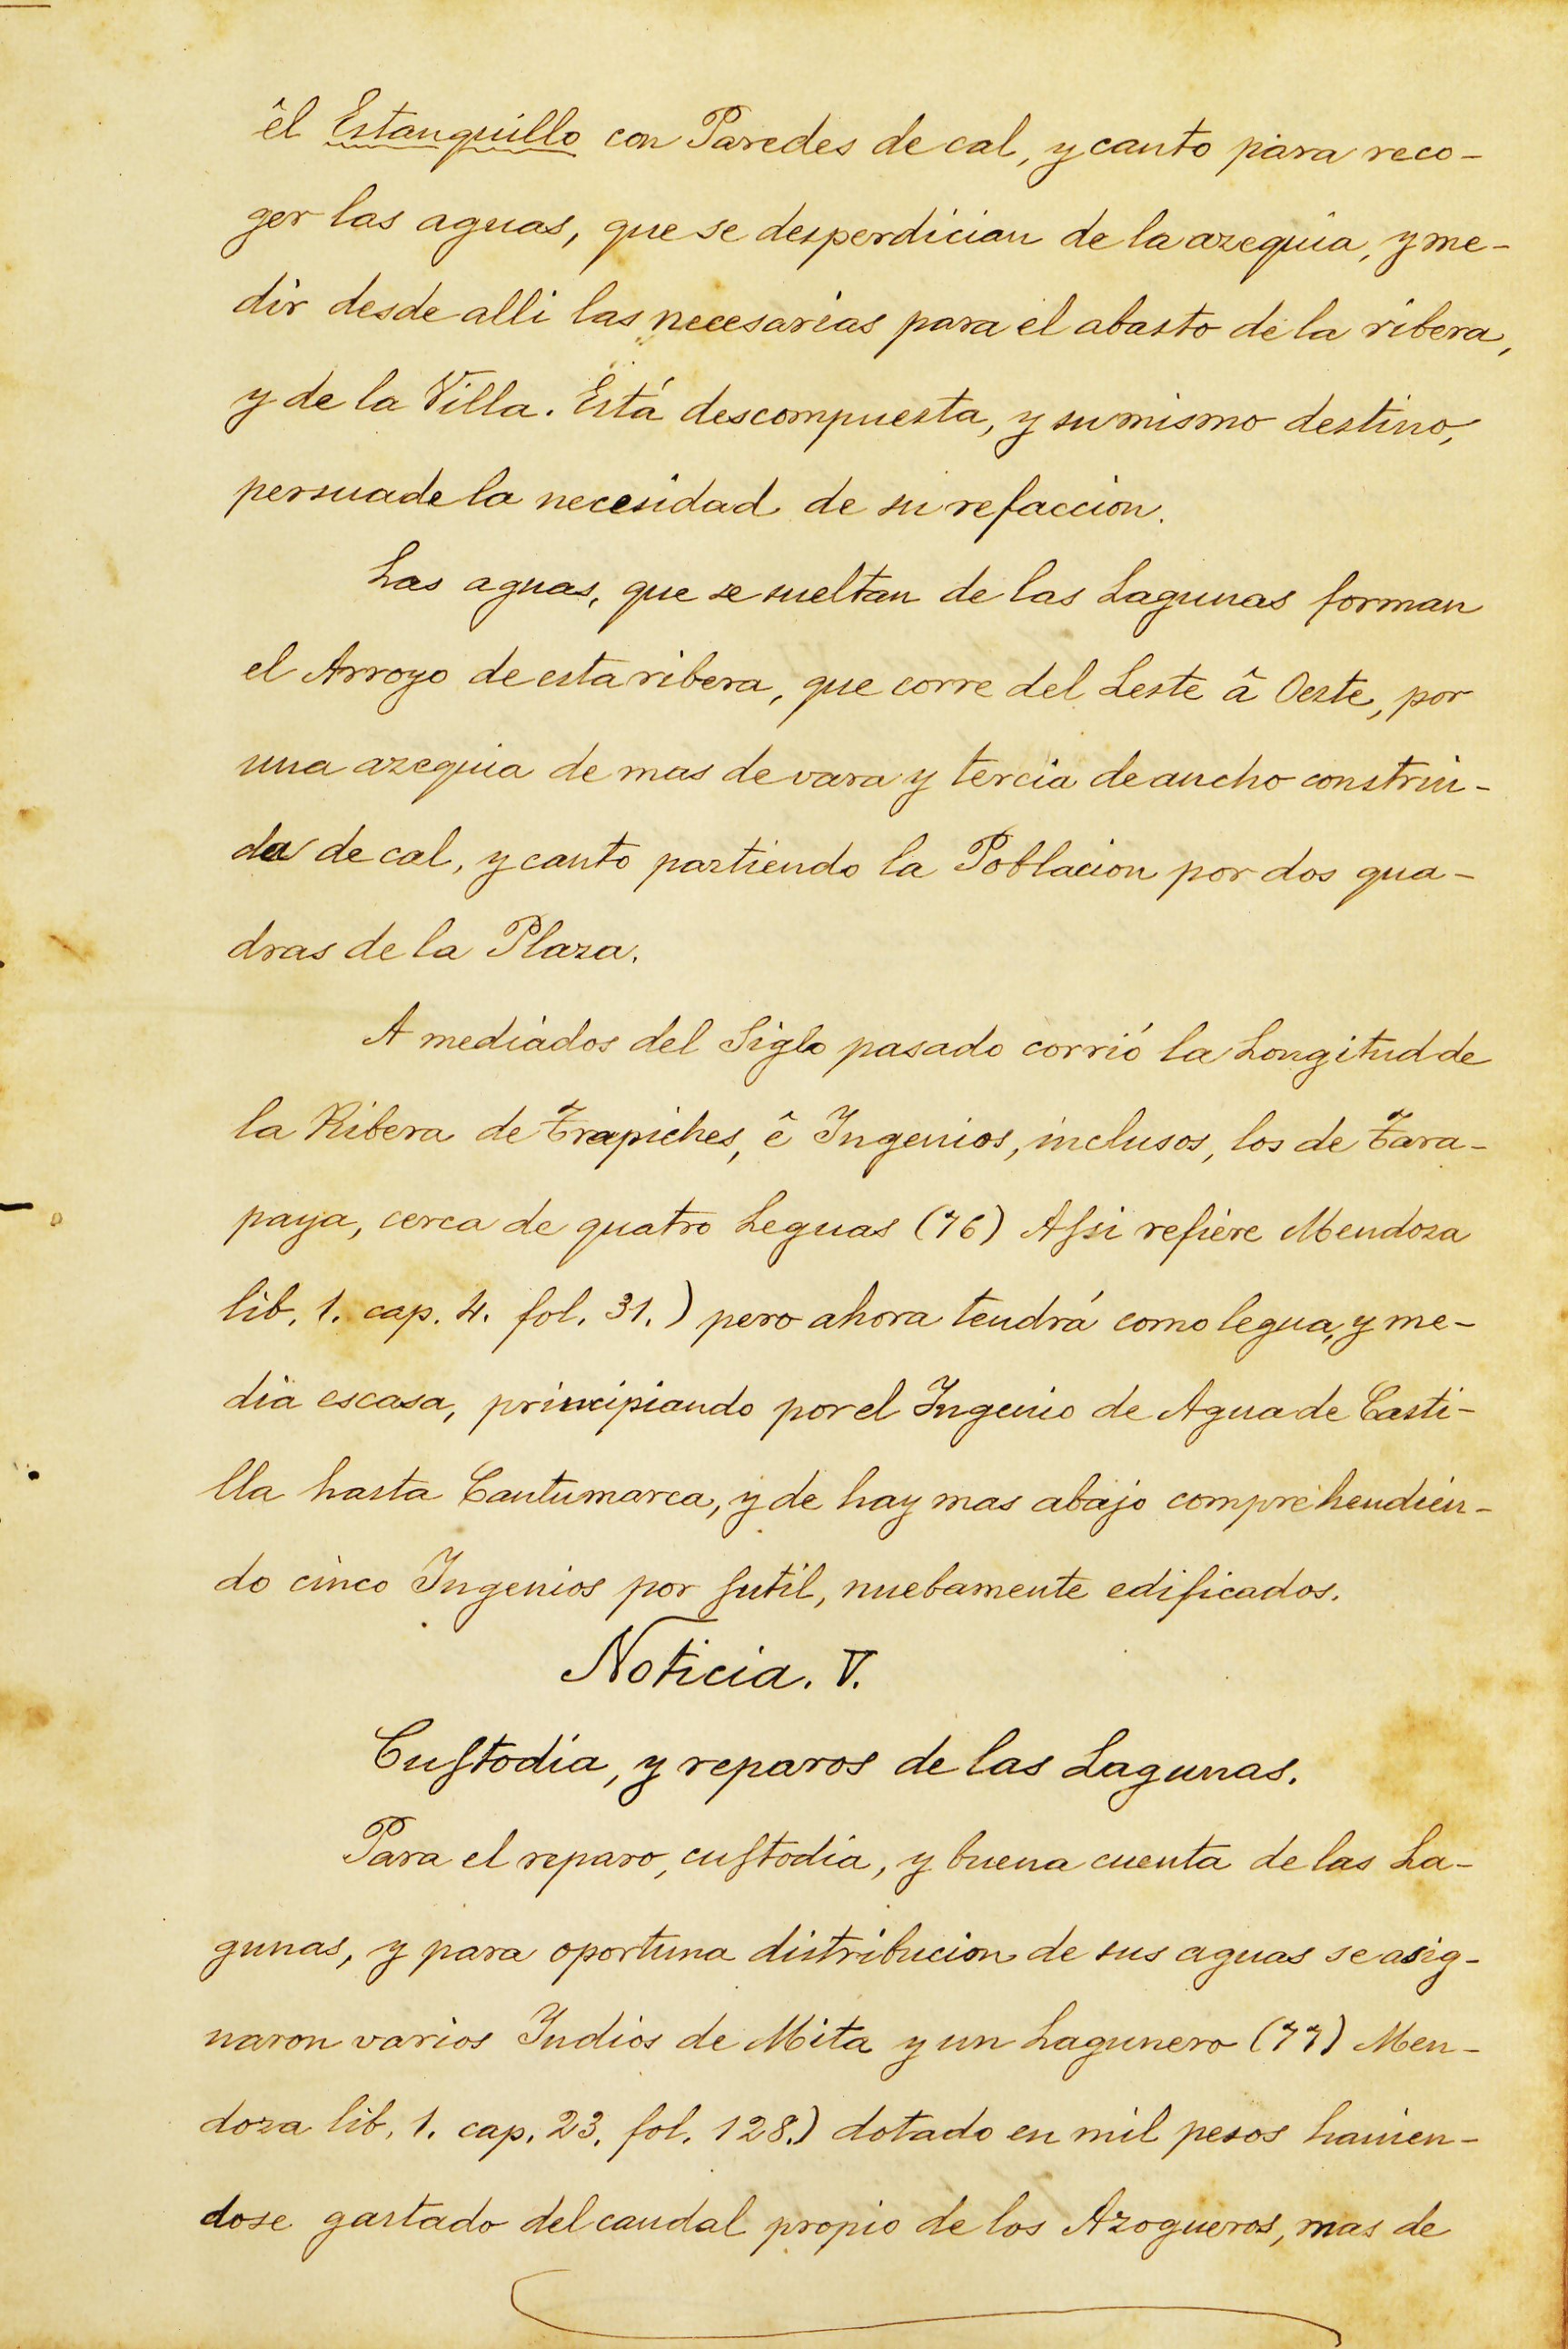 êl Estanquillo con Paredes de cal, y canto para reco-
ger las aguas, que se desperdician de la azequia, y me-
dir desde alli las necesarias para el abasto de la ribera,
y de la Villa. Está descompuesta, y su mismo destino,
persuade la necesidad de su refaccion.
Las aguas, que se sueltan de las Lagunas forman
el Arroyo de esta ribera, que corre del Leste â Oeste, por
una azequia de mas de vara y tercia de ancho construi-
da de cal, y canto partiendo la Poblacion por dos qua-
dras de la Plaza.
A mediados del Siglo pasado corrió la Longitud de
la Ribera de Trapiches, ê Ingenios, inclusos, los de Tara-
paya, cerca de quatro Leguas (76) Assi refiere Mendoza
lib. 1. cap. 4. fol. 31.) pero ahora tendrá como legua, y me-
dia escasa, principiando por el Ingenio de Agua de Casti-
lla hasta Cantumarca, y de hay mas abajo comprehendien-
do cinco Ingenios por sutil, nuebamente edificados.
Noticia. V.
Custodia, y reparos de las Lagunas.
Para el reparo, custodia, y buena cuenta de las La-
gunas, y para oportuna distribucion de sus aguas se asig-
naron varios Indios de Mita y un Lagunero (77) Men-
doza lib. 1. cap. 23. fol. 128.) dotado en mil pesos haiien-
dose gastado del caudal propio de los Azogueros, mas de